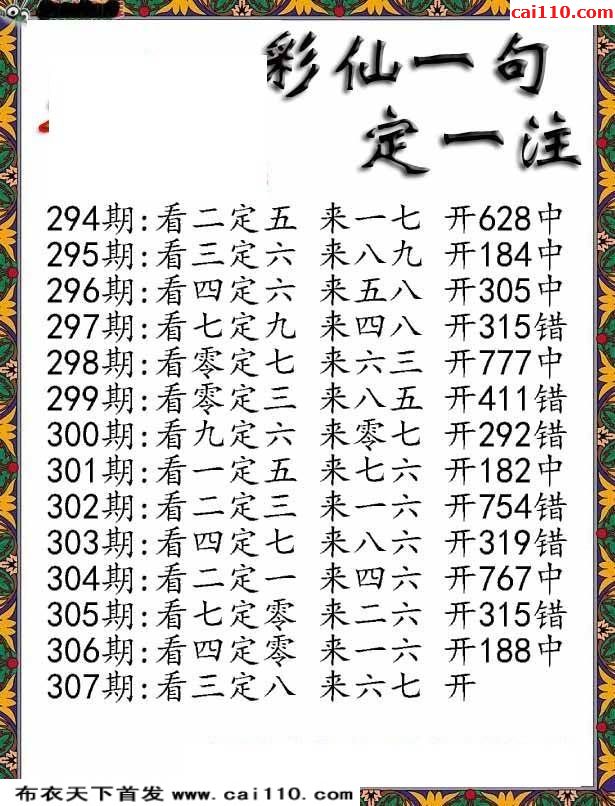 cai110.com
彩仙一句
定一注
294期:看二定五 来一七 开628中
295期:看三定六 来八九 开184中
296期:看四定六 来五八 开305中
297期:看七定九 来四八 开315错
298期:看零定七 来六三 开777中
299期:看零定三 来八五 开411错
300期:看九定六 来零七 开292错
301期:看一定五 来七六 开182中
302期:看二定三 来一六 开754错
303期:看四定七 来八六 开319错
304期:看二定一 来四六 开767中
305期:看七定零 来二六 开315错
306期:看四定零 来一六 开188中
307期:看三定八 来六七 开
布衣天下首发 www.cai110.com